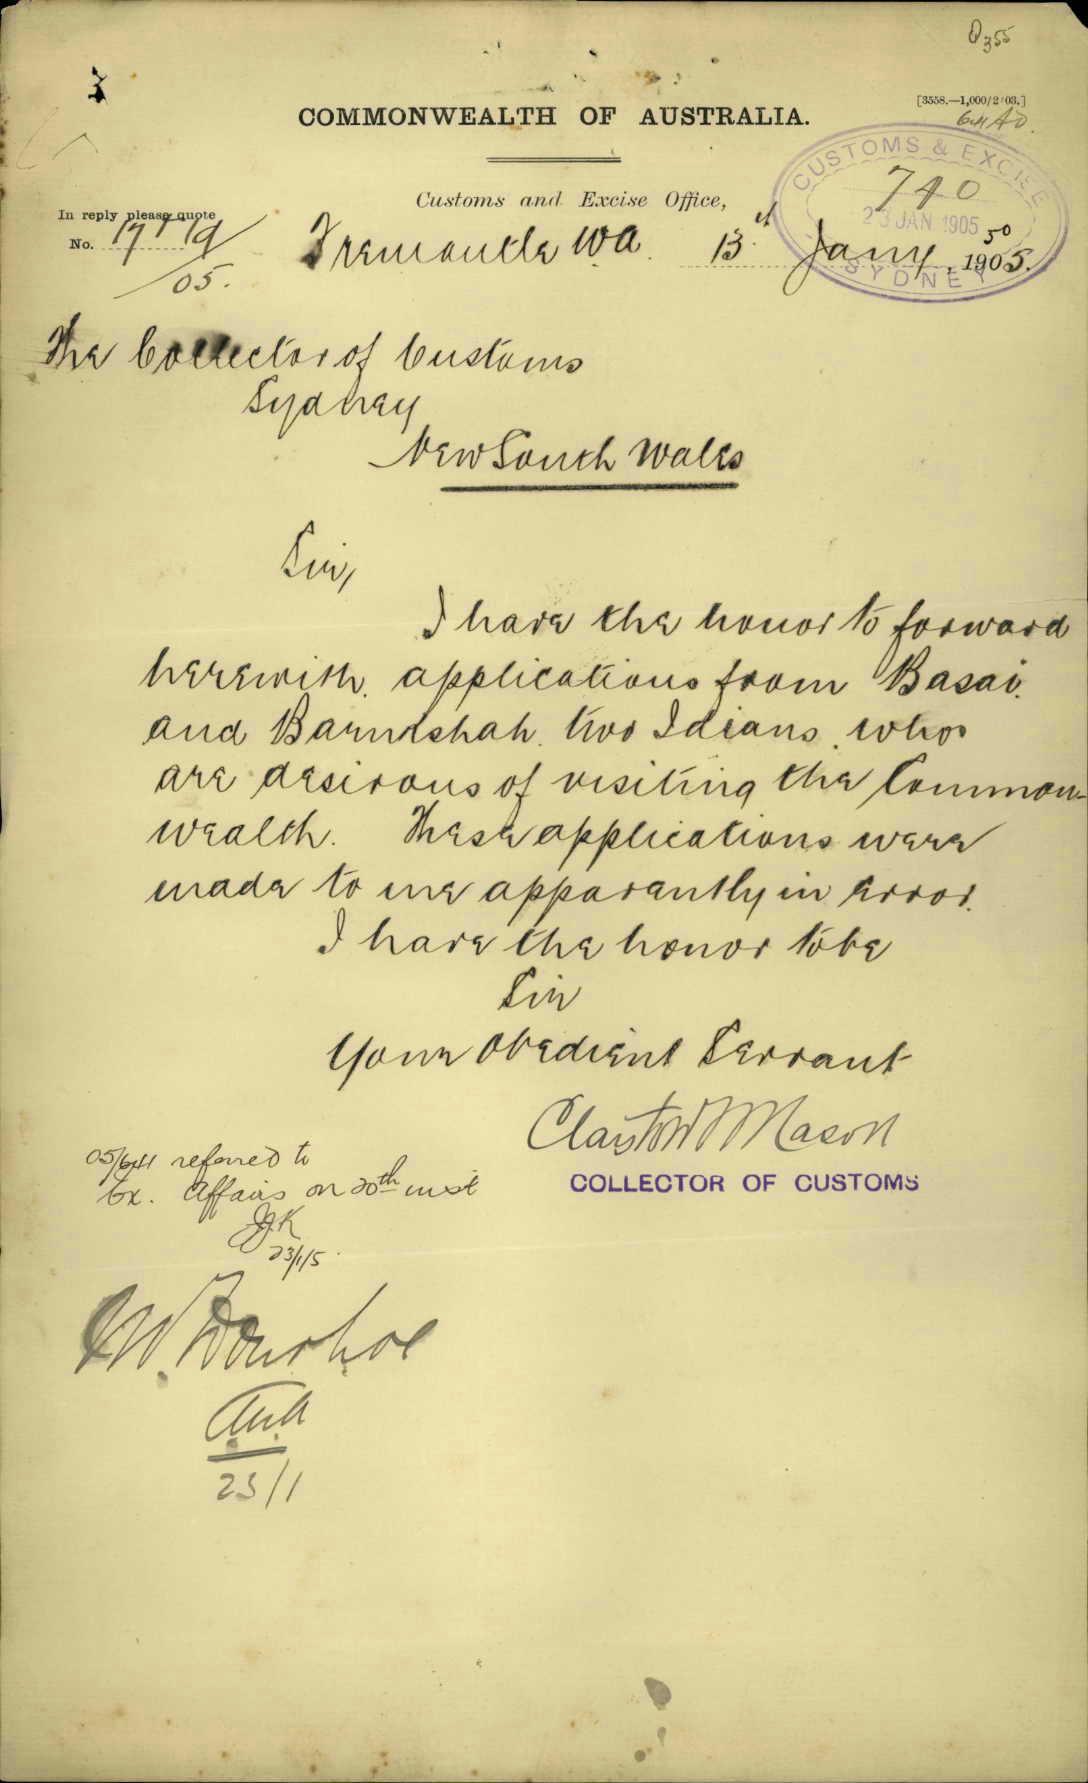 3
COMMONWEALTH OF AUSTRALIA.
[3558.—1,000/2/03.]
CUSTOMS & EXCISE
740
23 JAN 1905
SYDNEY
Customs and Excise Office,
In reply please quote
No.
/05.
Fremantle W.A. 13th Jany, 1905.
The Collector of Customs
Sydney
New South Wales
Sir,
I have the honor to forward
herewith applications from Basai
and Barntshah two Idians who
are desirous of visiting the Common-
wealth. These applications were
made to me apparently in error.
I have the honor to be
Sir
Your Obedient Servant
Clayton T Mason
COLLECTOR OF CUSTOMS
05/641 referred to
Ex. Affairs on 20th inst
JJK
23/1/5.
W. Donohoe
23/1